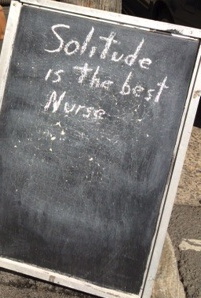 Solitude
is the best
Nurse